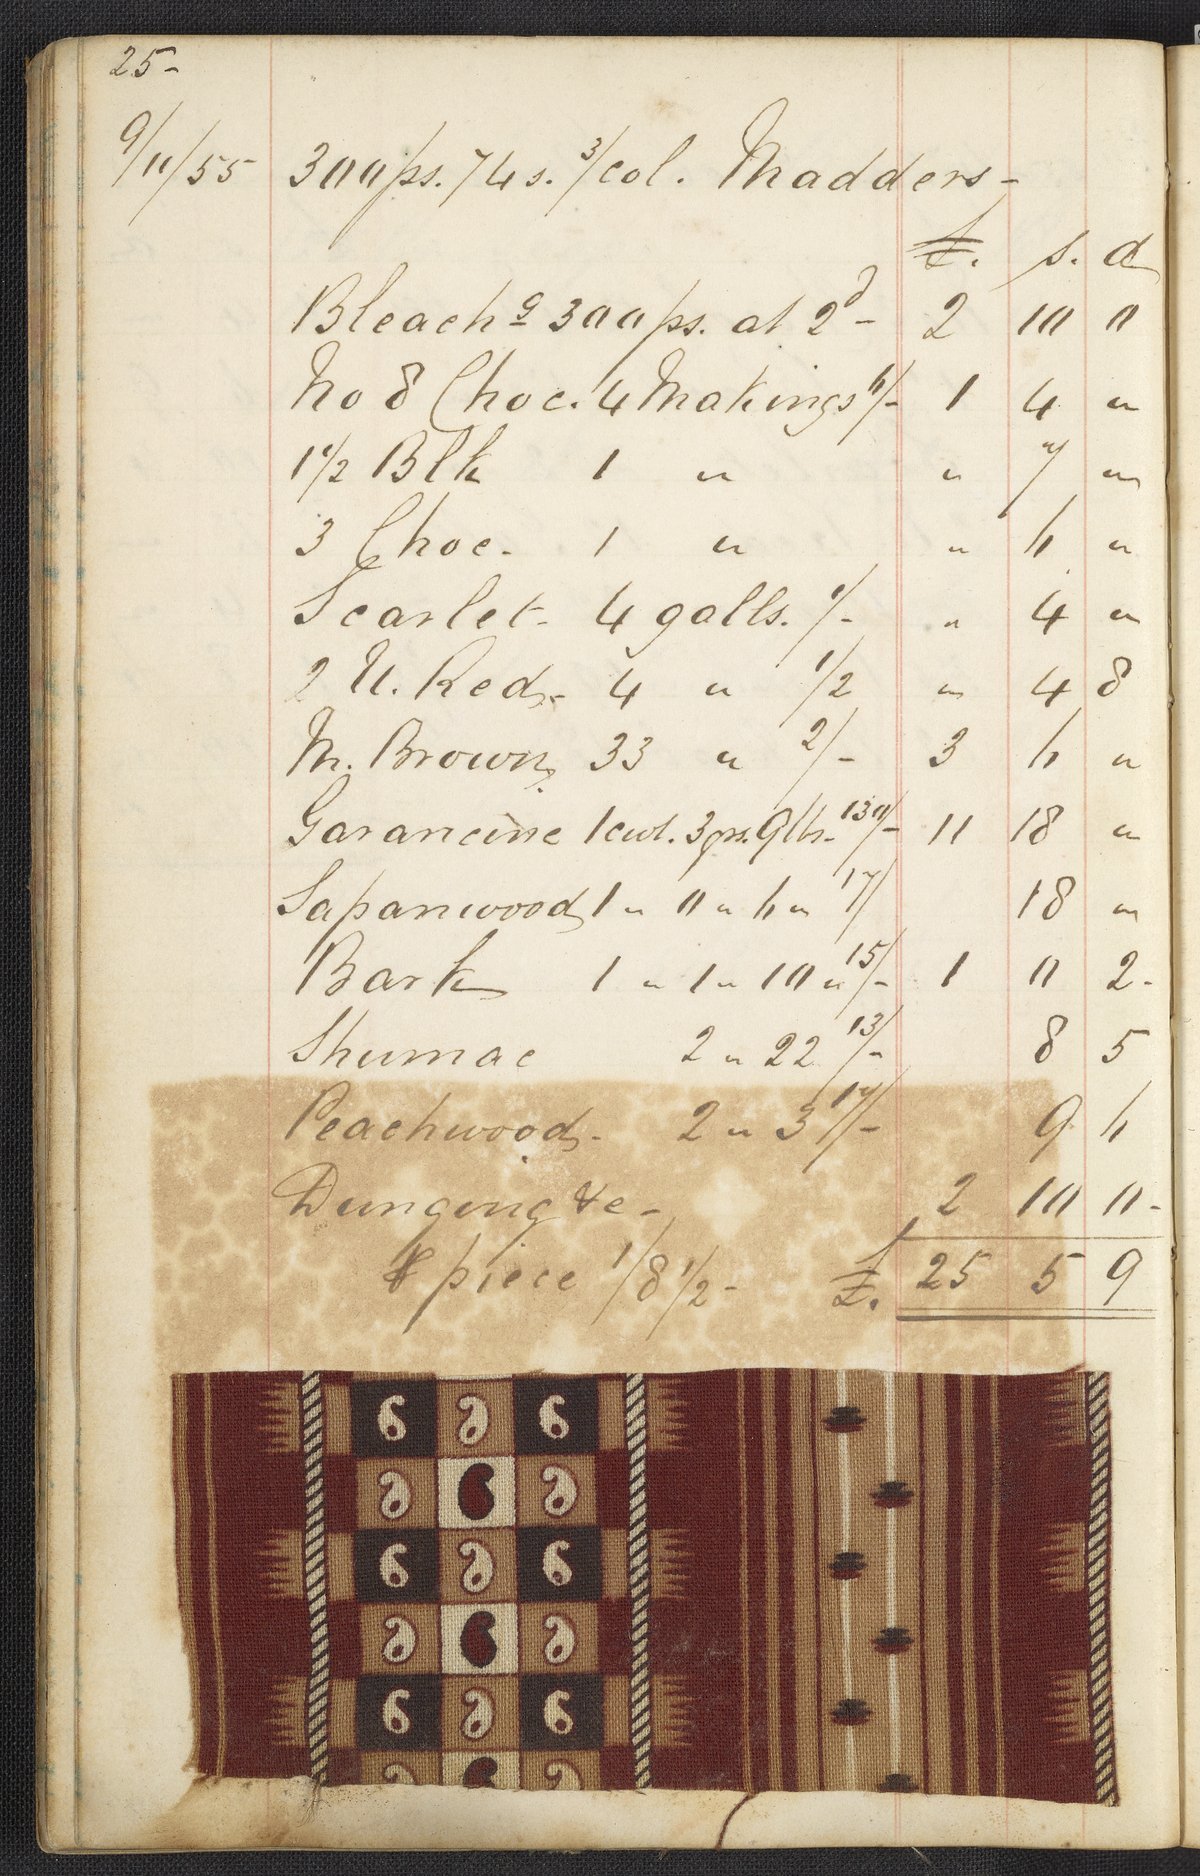 25-
9/11/55 300 ps. 74s. 3/col. Madders-
£. s. d
Bleachg 300 ps. at 2d - 2 10 0
No 8 Choc. 4 Makings 6/- 1 4 "
1 1/2 Blk 1 " " 7 "
3 Choc. 1 " " 6 "
Scarlet- 4 galls. 1/- " 4 "
2 U. Red,- 4 " 1/2 " 4 8
M. Brown, 33 " 2/- 3 6 "
Garancine 1cwt. 3qrs. 9lbs. 130/- 11 18 "
Sapanwood 1 " 0 " 6 " 17/ 18 "
Bark 1 " 1 " 10 " 15/- 1 0 2-
Shumac 2 " 22 13/- 8 5
Peachwood- 2 " 3 17/- 9 6
Dunging &c- 2 10 0-
℘ piece 1/8 1/2- £. 25 5 9